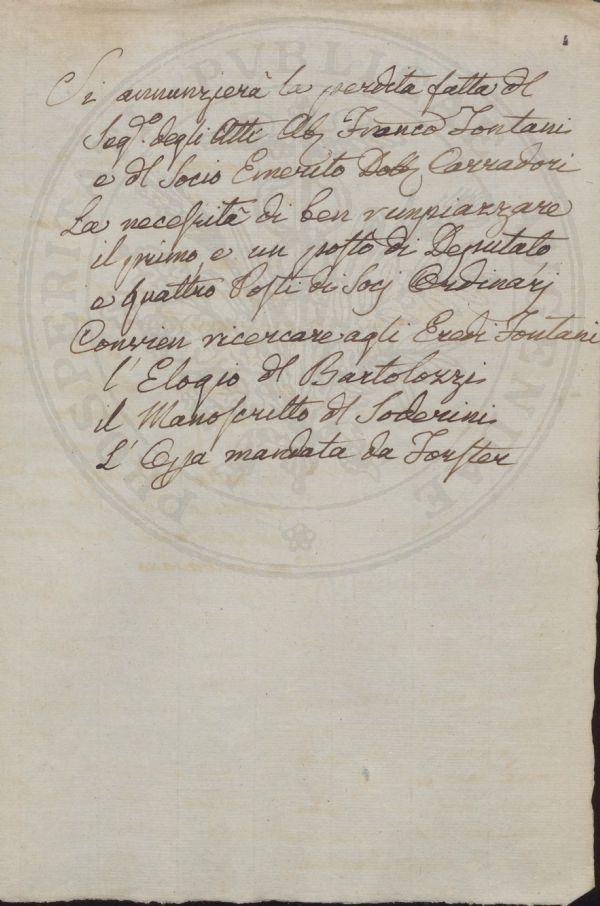 Si annunzierà la perdita fatta dl
Segr. degli Atti Ab. Franco Fontani
e dl Socio Emerito Dott. Carradori
La necessità di ben rimpiazzare
il primo, e un posto di Deputato
e quattro Posti di Socj Ordinarj
Convien ricercare agli Eredi Fontani
l'Elogio dl Bartolozzi
il Manoscritto dl Soderini
L' mandata da Forster
PROSPERITATI PVBLICAE